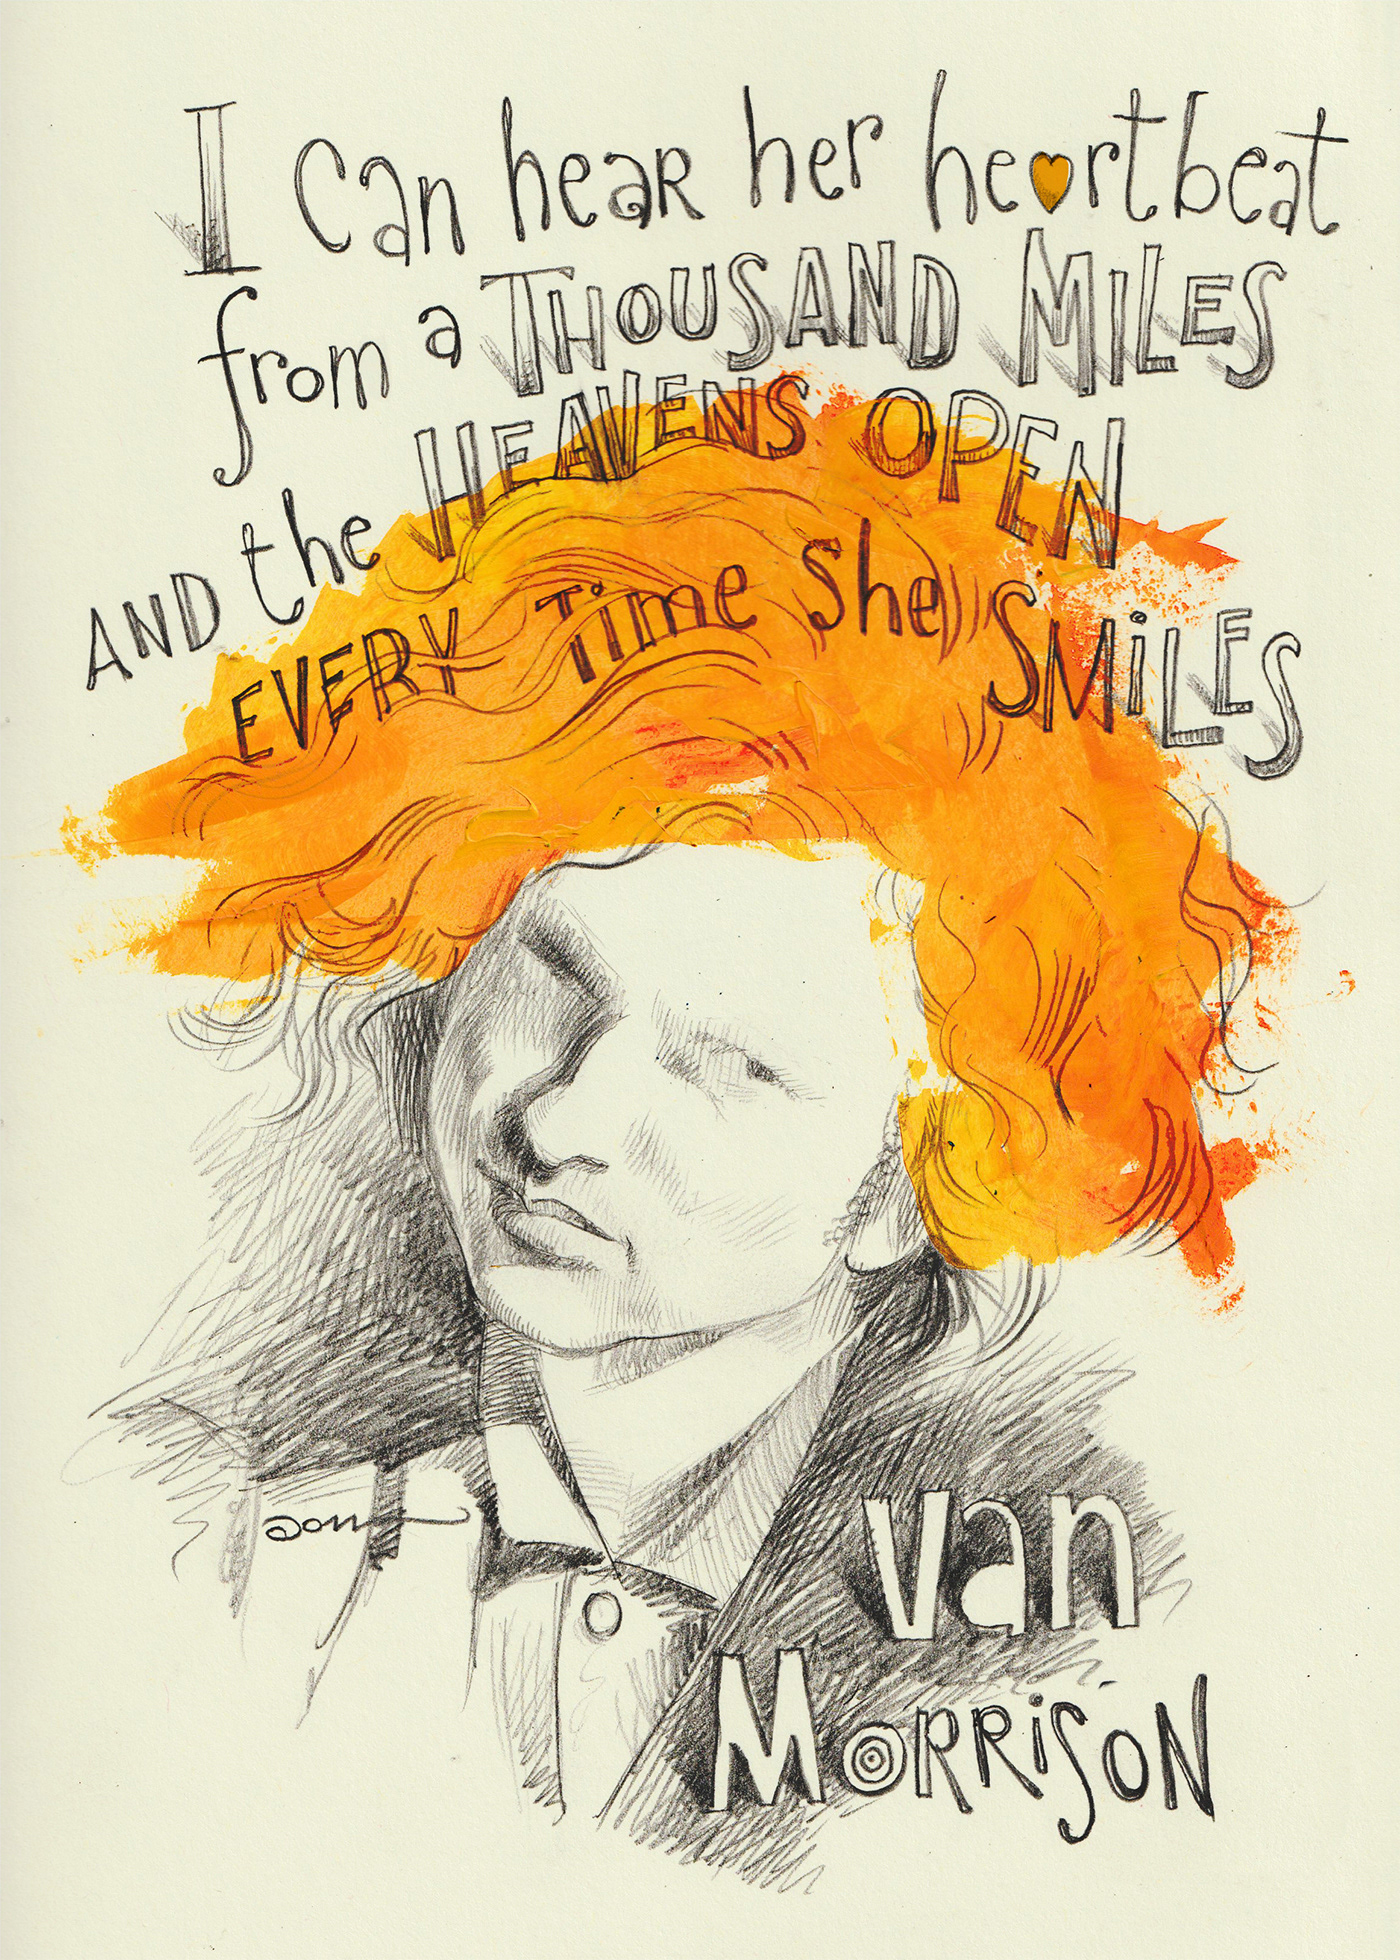 I can hear her heartbeat
from a THOUSAND MILES
AND the HEAVENS OPEN
EVERY Time She SMiLES
van
MORRiSON